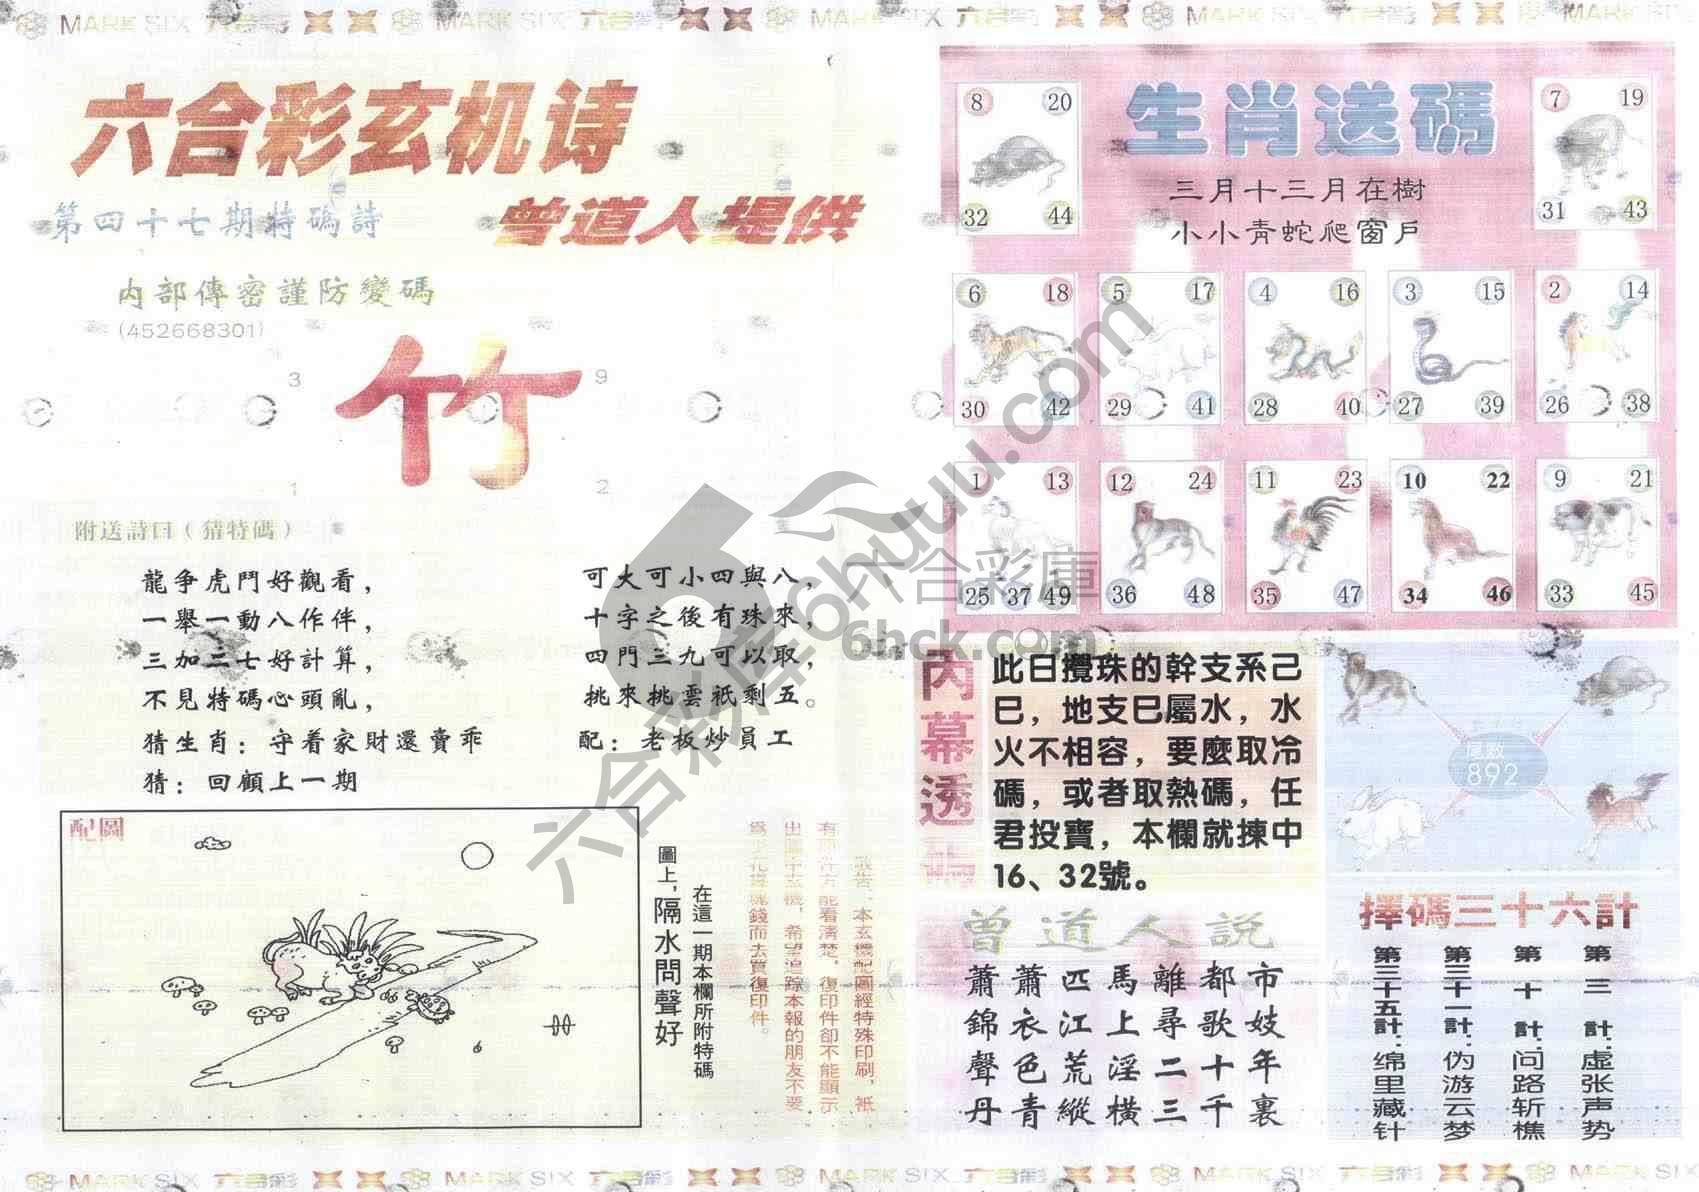 MARK SIX 六合彩 MARK SIX 六合彩 MARK SIX 六合彩 MARK SIX 六合彩 MARK SIX
六合彩玄机诗
第四十七期特碼詩
曾道人提供
内部傳密謹防變碼
(452668301)
3 9
竹
1 2
附送詩曰（猜特碼）
龍争虎鬥好觀看，
一舉一動八作伴，
三加二七好計算，
不見特碼心頭亂，
可大可小四與八，
十字之後有珠來，
四門三九可以取，
挑來挑雲衹剩五。
猜生肖：守着家財還賣乖
配：老板炒員工
猜：回顧上一期
配圖
圖上，隔水問聲好
在這一期本欄所附特碼
本玄機配圖經特殊印刷，衹
有 件方能看清楚，復印件卻不能顯示
出圖中玄機，希望追踪本報的朋友不要
爲 花冤枉錢而去買復印件。
生肖送碼
三月十三月在樹
小小青蛇爬窗戶
8 20
32 44
7 19
31 43
6 18
30 42
5 17
29 41
4 16
28 40
3 15
27 39
2 14
26 38
1 13
25 37 49
12 24
36 48
11 23
35 47
10 22
34 46
9 21
33 45
内幕透碼
此日攪珠的幹支系己
巳，地支巳屬水，水
火不相容，要麼取冷
碼，或者取熱碼，任
君投寶，本欄就揀中
16、32號。
尾數
892
曾道人説
蕭蕭匹馬離都市
錦衣江上尋歌妓
聲色荒淫二十年
丹青縱橫三千裏
擇碼三十六計
第三計：虚张声势
第十計：问路斩樵
第三十一計：伪游云梦
第三十五計：绵里藏针
六合彩库6htuu.com
六合彩庫
6hck.com
MARK SIX 六合彩 MARK SIX 六合彩 MARK SIX 六合彩 MARK SIX 六合彩 MARK SIX